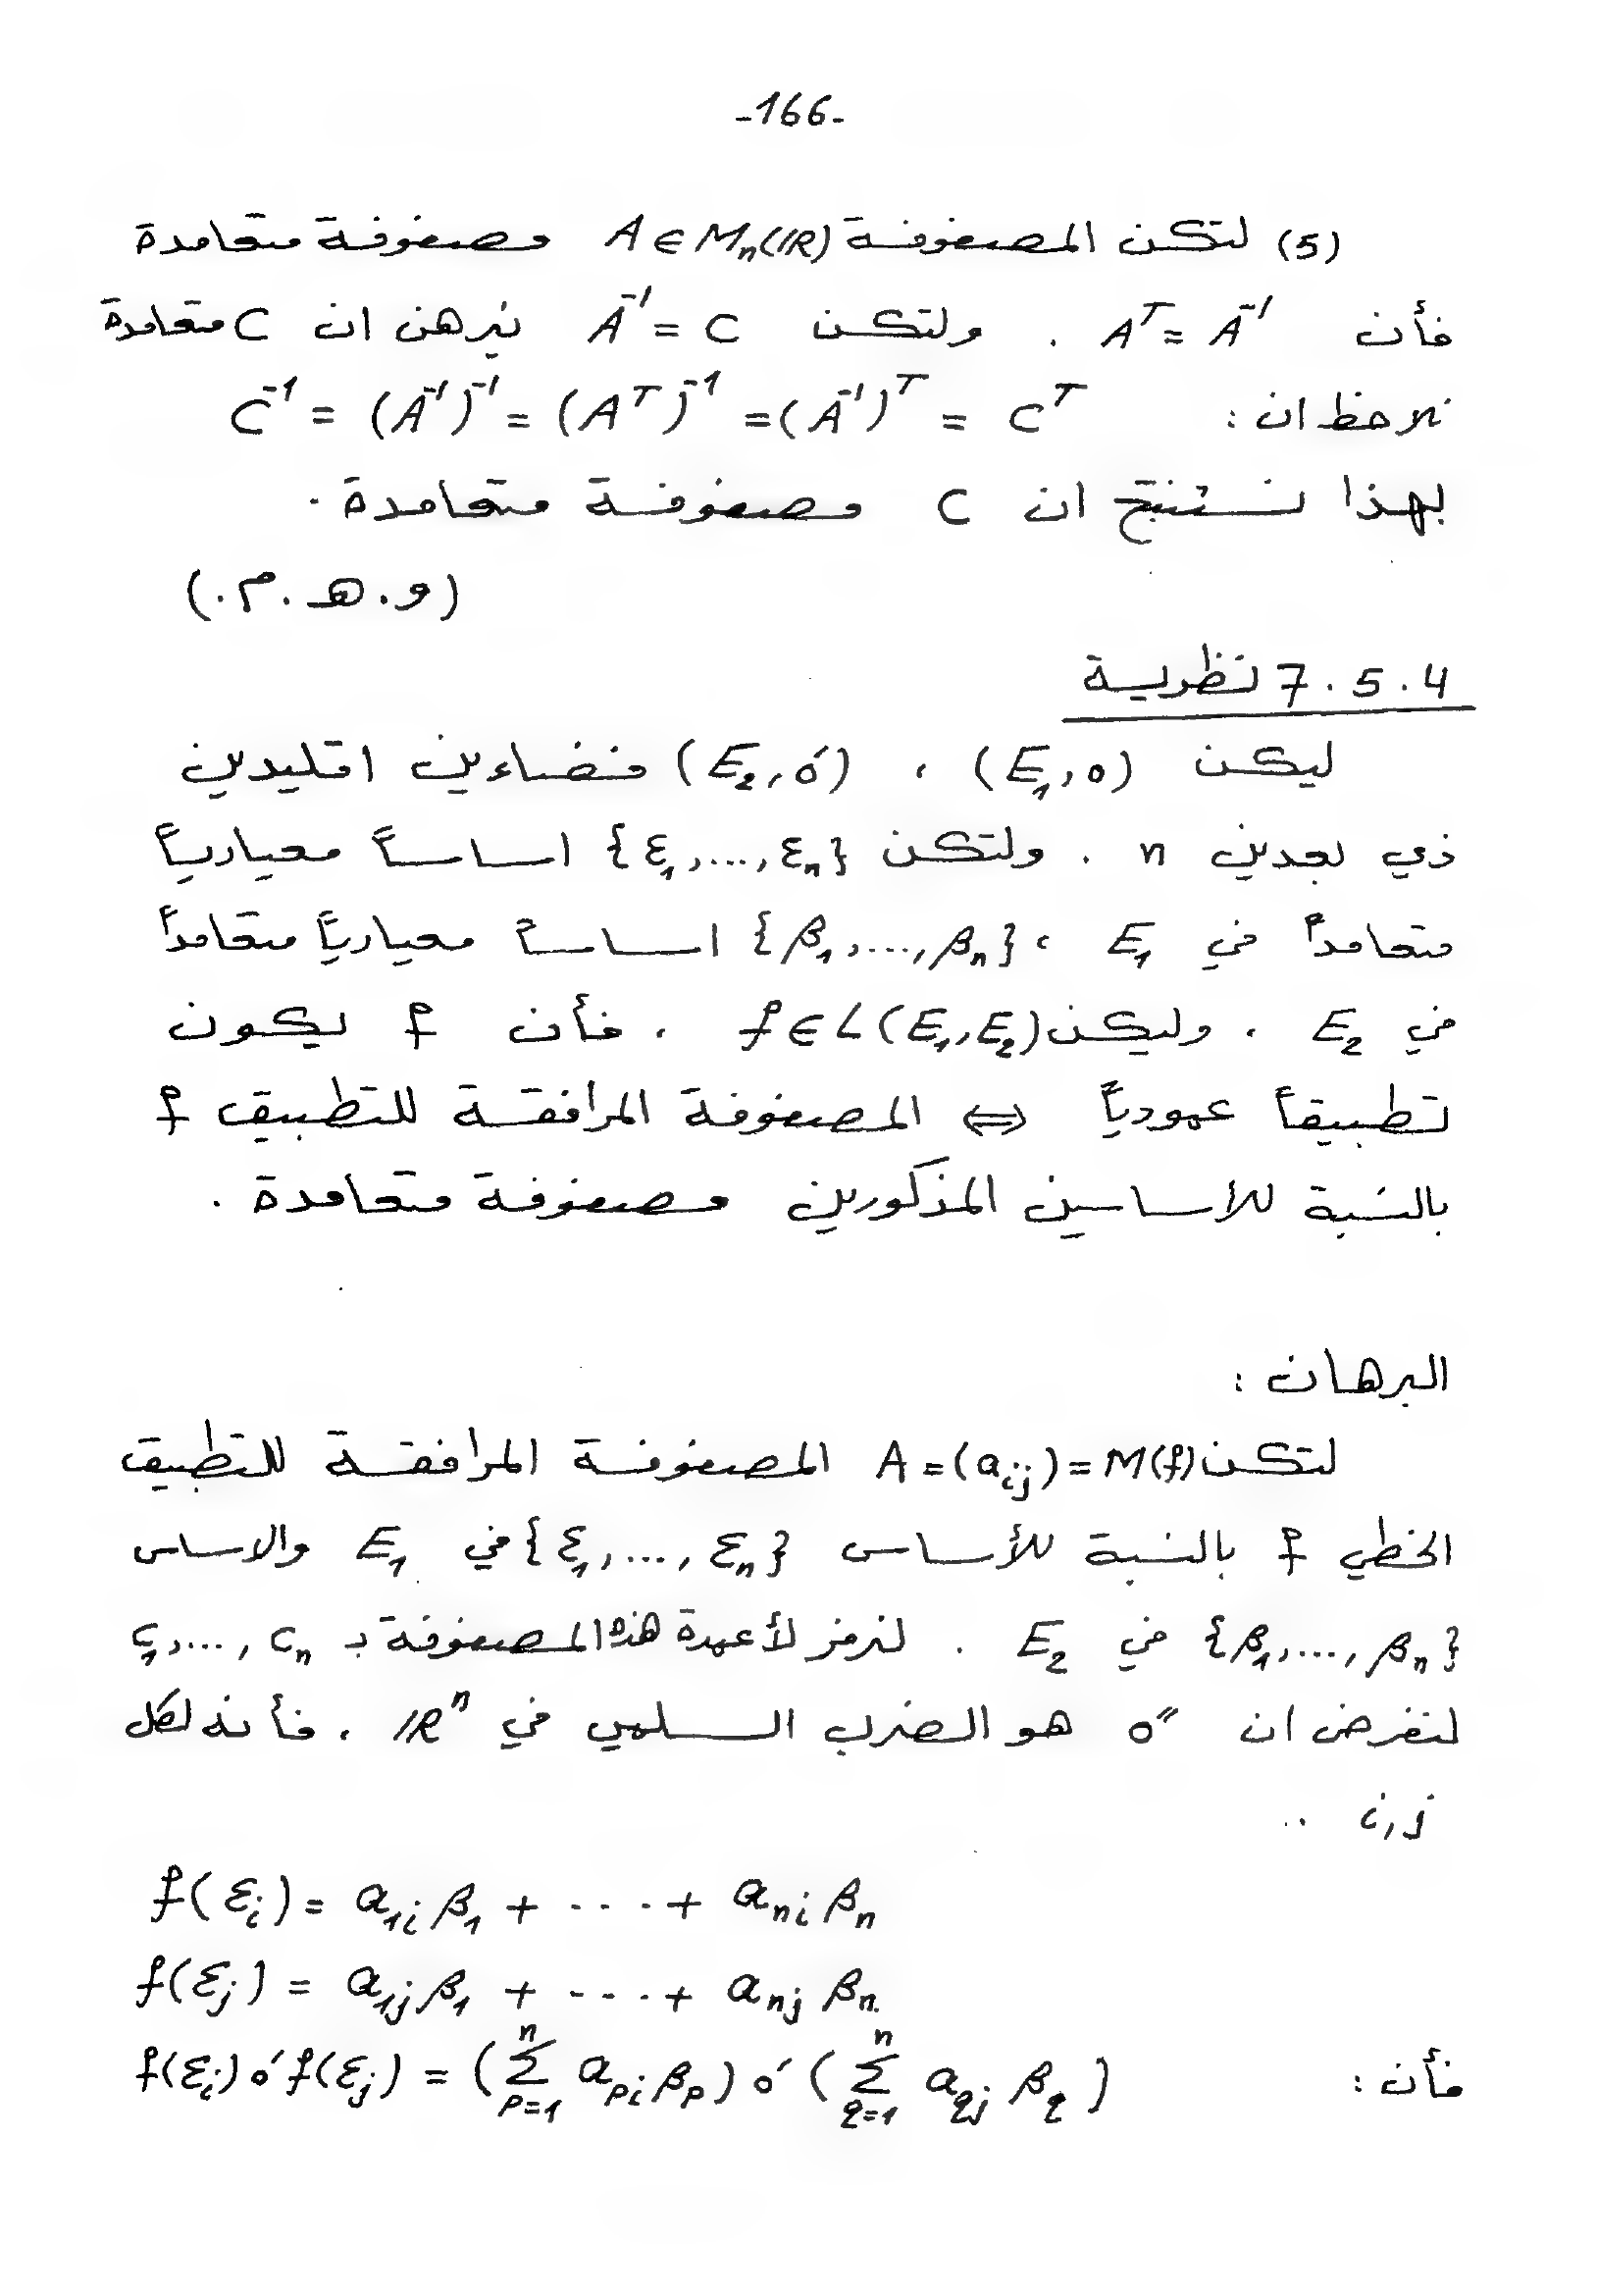 -166-
(5) لتكن المصفوفة A ∈ Mₙ(ℝ) مصفوفة متعامدة
فأن Aᵀ = A⁻¹ . ولتكن A⁻¹ = C نبرهن ان C متعامدة
نلاحظ ان : C⁻¹ = (A⁻¹)⁻¹ = (Aᵀ)⁻¹ = (A⁻¹)ᵀ = Cᵀ
بهذا نستنتج ان C مصفوفة متعامدة .
(و . هـ . م .)
7.5.4 نظرية
ليكن (E₁, o) ، (E₂, o′) فضاءين اقليدين
ذي بعدين n . ولتكن {ε₁, ..., εₙ} اساساً معيارياً
متعامداً في E₁ ، {β₁, ..., βₙ} اساساً معيارياً متعامداً
في E₂ . وليكن f ∈ L(E₁, E₂) . فأن f يكون
تطبيقاً عمودياً ⇔ المصفوفة المرافقة للتطبيق f
بالنسبة للاساسين المذكورين مصفوفة متعامدة .
البرهان :
لتكن A = (aᵢⱼ) = M(f) المصفوفة المرافقة للتطبيق
الخطي f بالنسبة للأساس {ε₁, ..., εₙ} في E₁ والاساس
{β₁, ..., βₙ} في E₂ . لنرمز لأعمدة هذه المصفوفة بـ c₁, ..., cₙ
لنفرض ان o″ هو الضرب السلمي في ℝⁿ . فأنه لكل
i, j ..
f(εᵢ) = a₁ᵢ β₁ + ---- + aₙᵢ βₙ
f(εⱼ) = a₁ⱼ β₁ + ---- + aₙⱼ βₙ
فأن : f(εᵢ) o′ f(εⱼ) = (∑ₚ₌₁ⁿ aₚᵢ βₚ) o′ (∑_{q=1}^{n} a_{qj} β_q)